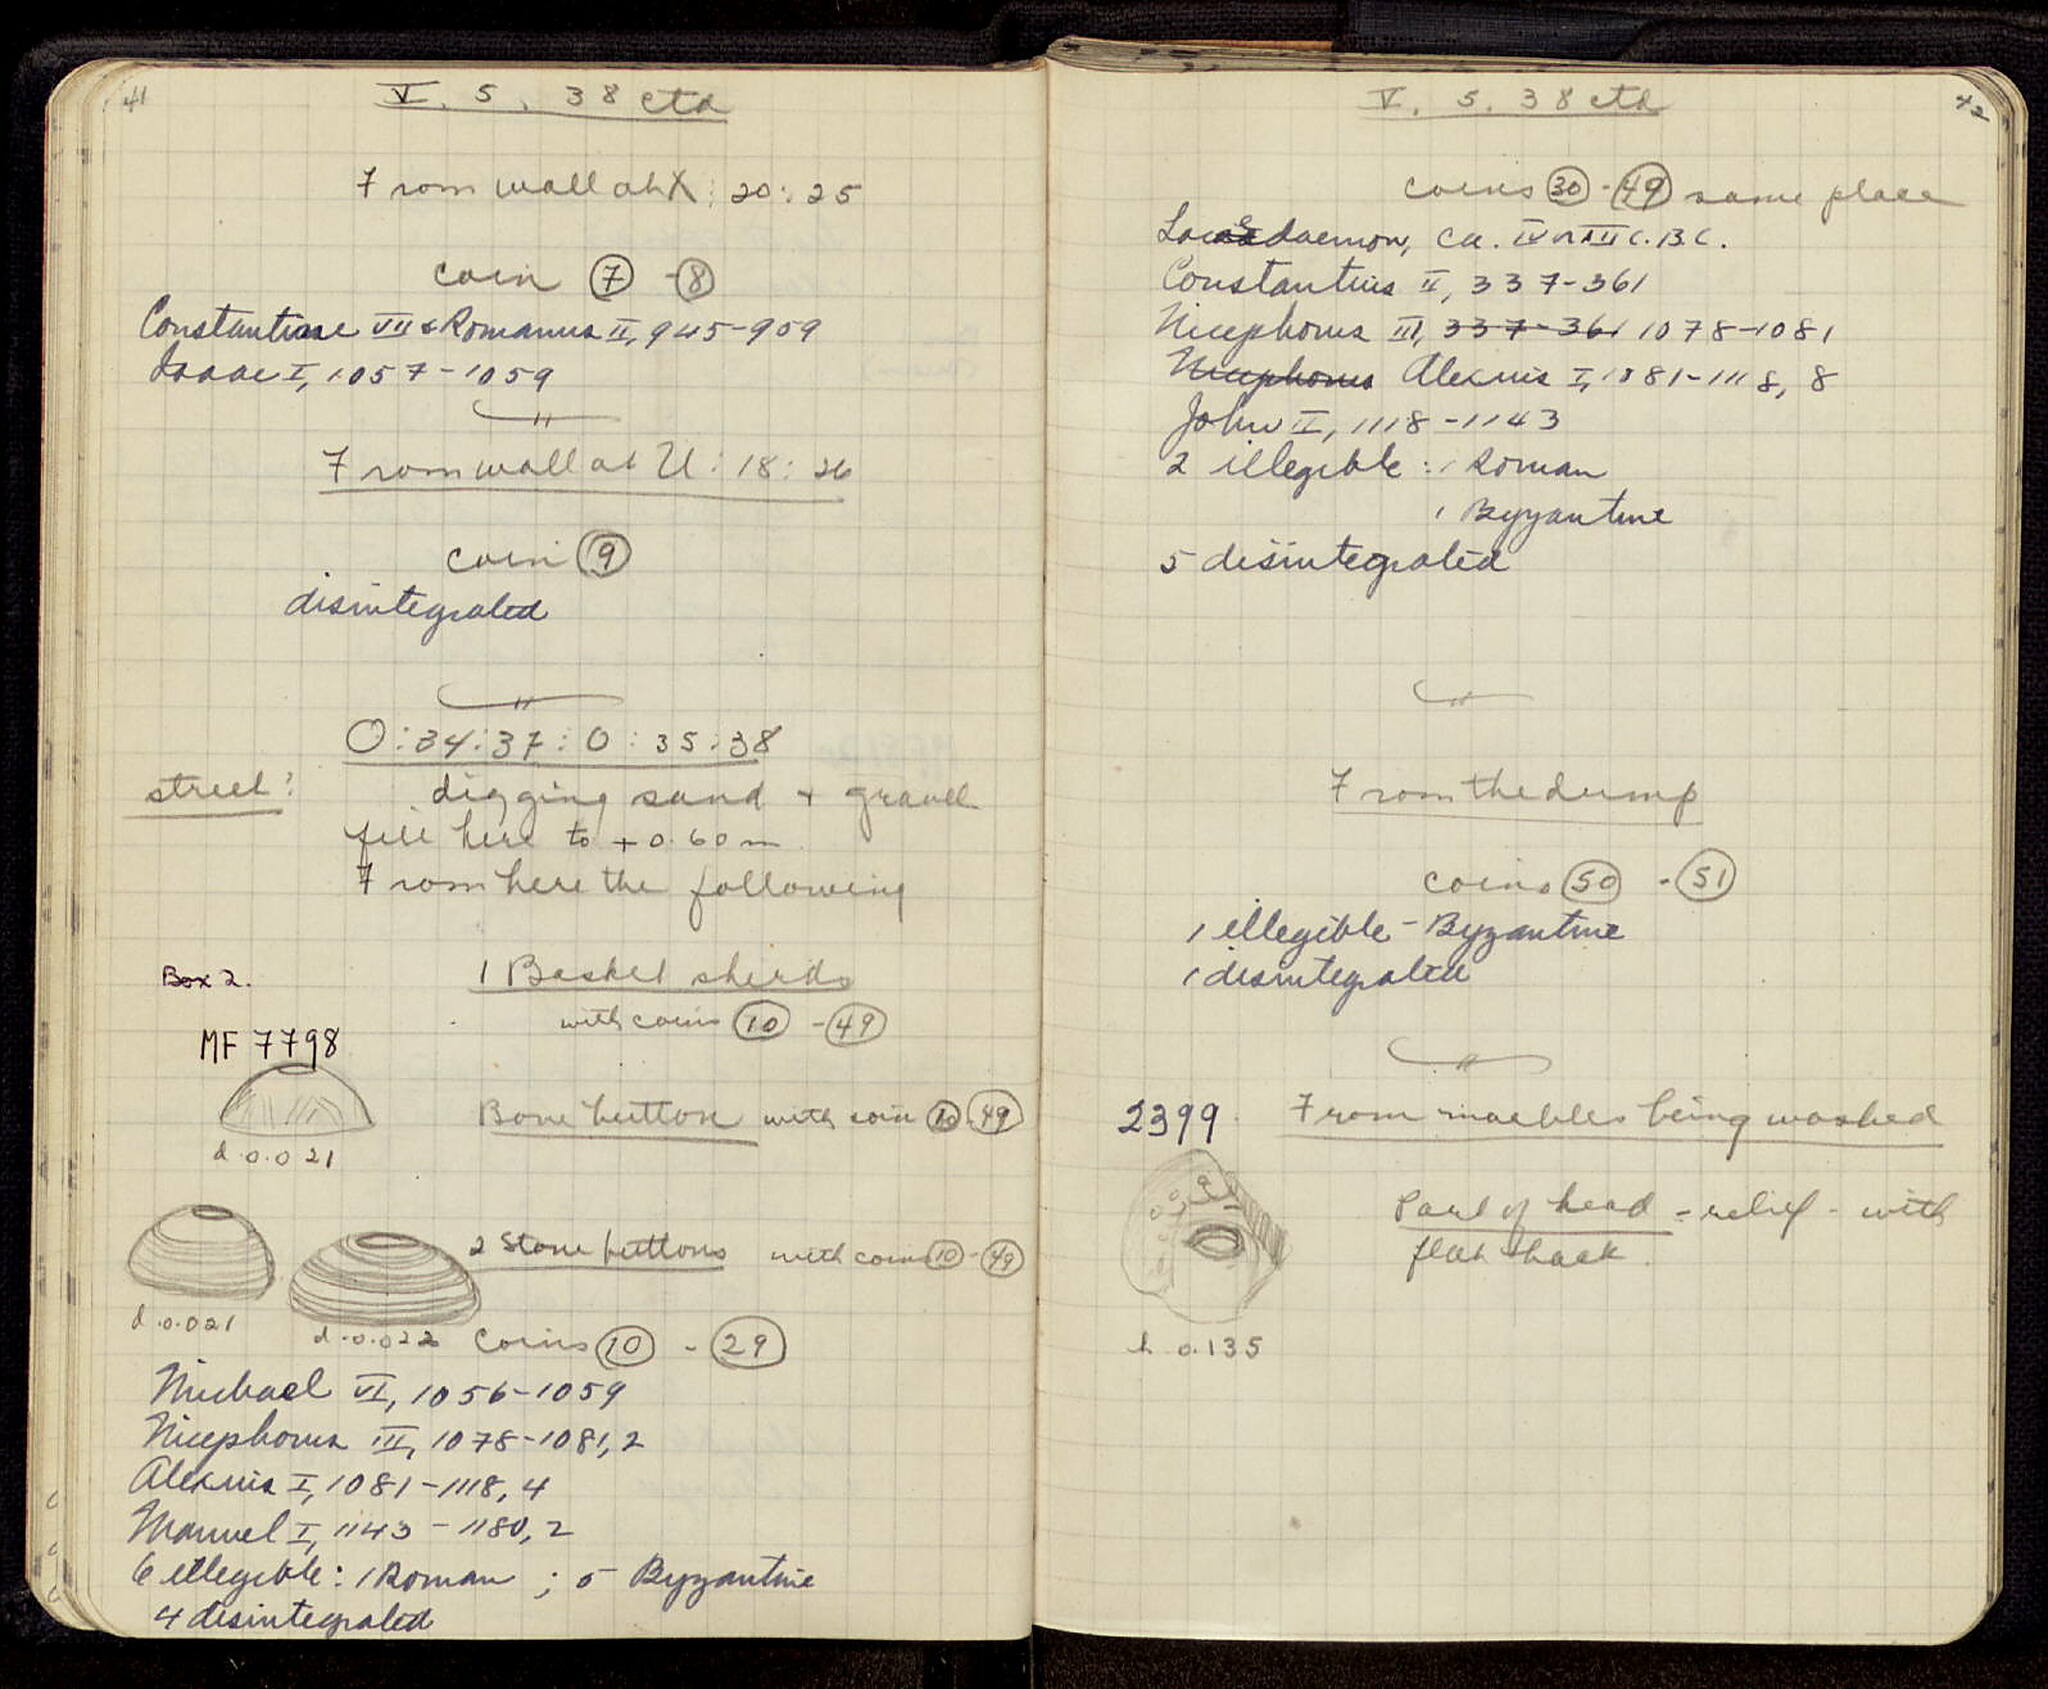 41
V. 5. 38 ctd
From wall at X : 20 : 25
coin 7 - 8
Constantine VII & Romanus II, 945-959
Isaac I, 1057-1059
From wall at U : 18 : 26
coin 9
disintegrated
O : 34 : 37 : O : 35 : 38
street?
digging sand + gravel
fill here to + 0.60 m
From here the following
Box 2.
1 Basket sherds
with coins 10 - 49
MF 7798
Bone button with coin 10 - 49
d. 0.021
2 Stone buttons with coins 10 - 49
d. 0.021
d. 0.022
Coins 10 - 29
Michael VI, 1056-1059
Nicephorus III, 1078-1081, 2
Alexius I, 1081-1118, 4
Manuel I, 1143-1180, 2
6 illegible: 1 Roman ; 5 Byzantine
4 disintegrated
V. 5. 38 ctd
42
coins 30 - 49 same place
Lacedaemon, ca. IV or III C. B.C.
Constantius II, 337-361
Nicephorus III, 337-361 1078-1081
Nicephorus Alexius I, 1081-1118, 8
John II, 1118-1143
2 illegible : 1 Roman
1 Byzantine
5 disintegrated
From the dump
coins 50 - 51
1 illegible - Byzantine
1 disintegrated
2399. From marbles being washed
Part of head - relief - with
flat back
h 0.135